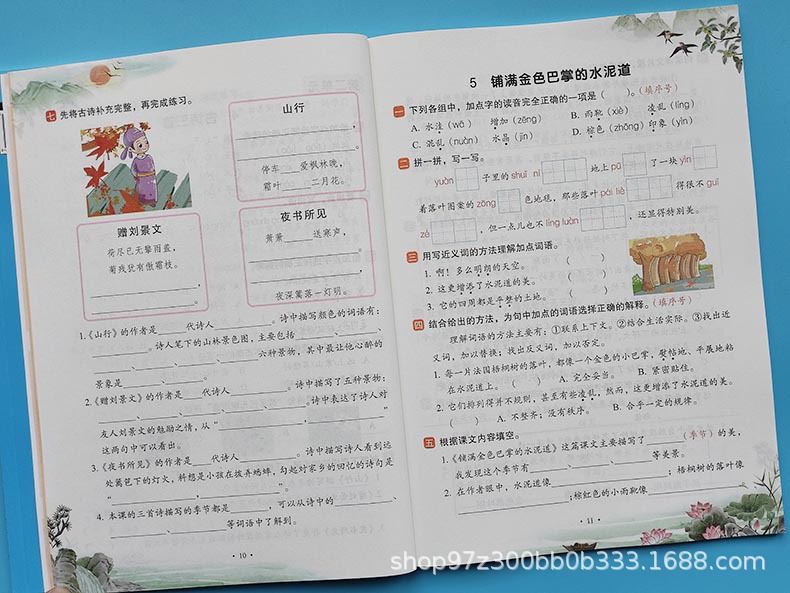 七 先将古诗补充完整，再完成练习。
山行
______________，
______________。
停车____爱枫林晚，
霜叶____二月花。
赠刘景文
荷尽已无擎雨盖，
菊残犹有傲霜枝。
______________，
______________。
夜书所见
萧萧____送寒声，
______________。
______________，
夜深篱落一灯明。
1.《山行》的作者是____代诗人________。诗中描写颜色的词语有：
________。诗人笔下的山林景色图，主要包括________、
____、____、____、____、____六种景物，其中最让他心醉的
景象是________。
2.《赠刘景文》的作者是____代诗人________。诗中描写了五种景物：
____、____、____、____、____。诗中表达了诗人对
友人刘景文的勉励之情，从“______________，______________”
这两句中可以看出。
3.《夜书所见》的作者是____代诗人________。诗中描写诗人看到远
处篱笆下的灯火，料想是小孩在拔弄蟋蟀，勾起对家乡的回忆的诗句是
“______________，______________”。
4. 本课的三首诗描写的季节都是____，可以从诗中的________、
______________等词语中了解到。
· 10 ·
5 铺满金色巴掌的水泥道
一 下列各组中，加点字的读音完全正确的一项是（ ）。（填序号）
A. 水洼（wā） 增加（zēng） B. 雨靴（xiè） 凌乱（líng）
C. 混乱（nuàn） 水晶（jīn） D. 棕色（zhōng）印象（yìn）
二 拼一拼，写一写。
yuàn 子里的 shuǐ ní 地上 pū 了一块 yìn
着落叶图案的 zōng 色地毯，那些落叶 pái liè 得很不 guī
zé ，但一点儿也不 líng luàn ，还显得特别美。
三 用写近义词的方法理解加点词语。
1. 啊！多么明朗的天空。 （ ）
2. 这更增添了水泥道的美。 （ ）
3. 它的四周都是平整的土地。 （ ）
四 结合给出的方法，为句中加点的词语选择正确的解释。（填序号）
理解词语的方法主要有：①联系上下文。②结合生活实际。③找出近
义词，加以替换；找出反义词，加以否定。
1. 每一片法国梧桐树的落叶，都像一个金色的小巴掌，熨帖地、平展地粘
在水泥道上。（ ） A. 完全妥当。 B. 紧密贴住。
2. 它们排列得并不规则，甚至有些凌乱，然而，这更增添了水泥道的美。
（ ） A. 不整齐；没有秩序。 B. 合乎一定的规律。
五 根据课文内容填空。
1.《铺满金色巴掌的水泥道》这篇课文主要描写了________（季节）的美，
我发现这个季节有________、________、________等美景。
2. 在作者眼中，水泥道像______________；梧桐树的落叶像
______________；棕红色的小雨靴像______________。
· 11 ·
shop97z300bb0b333.1688.com